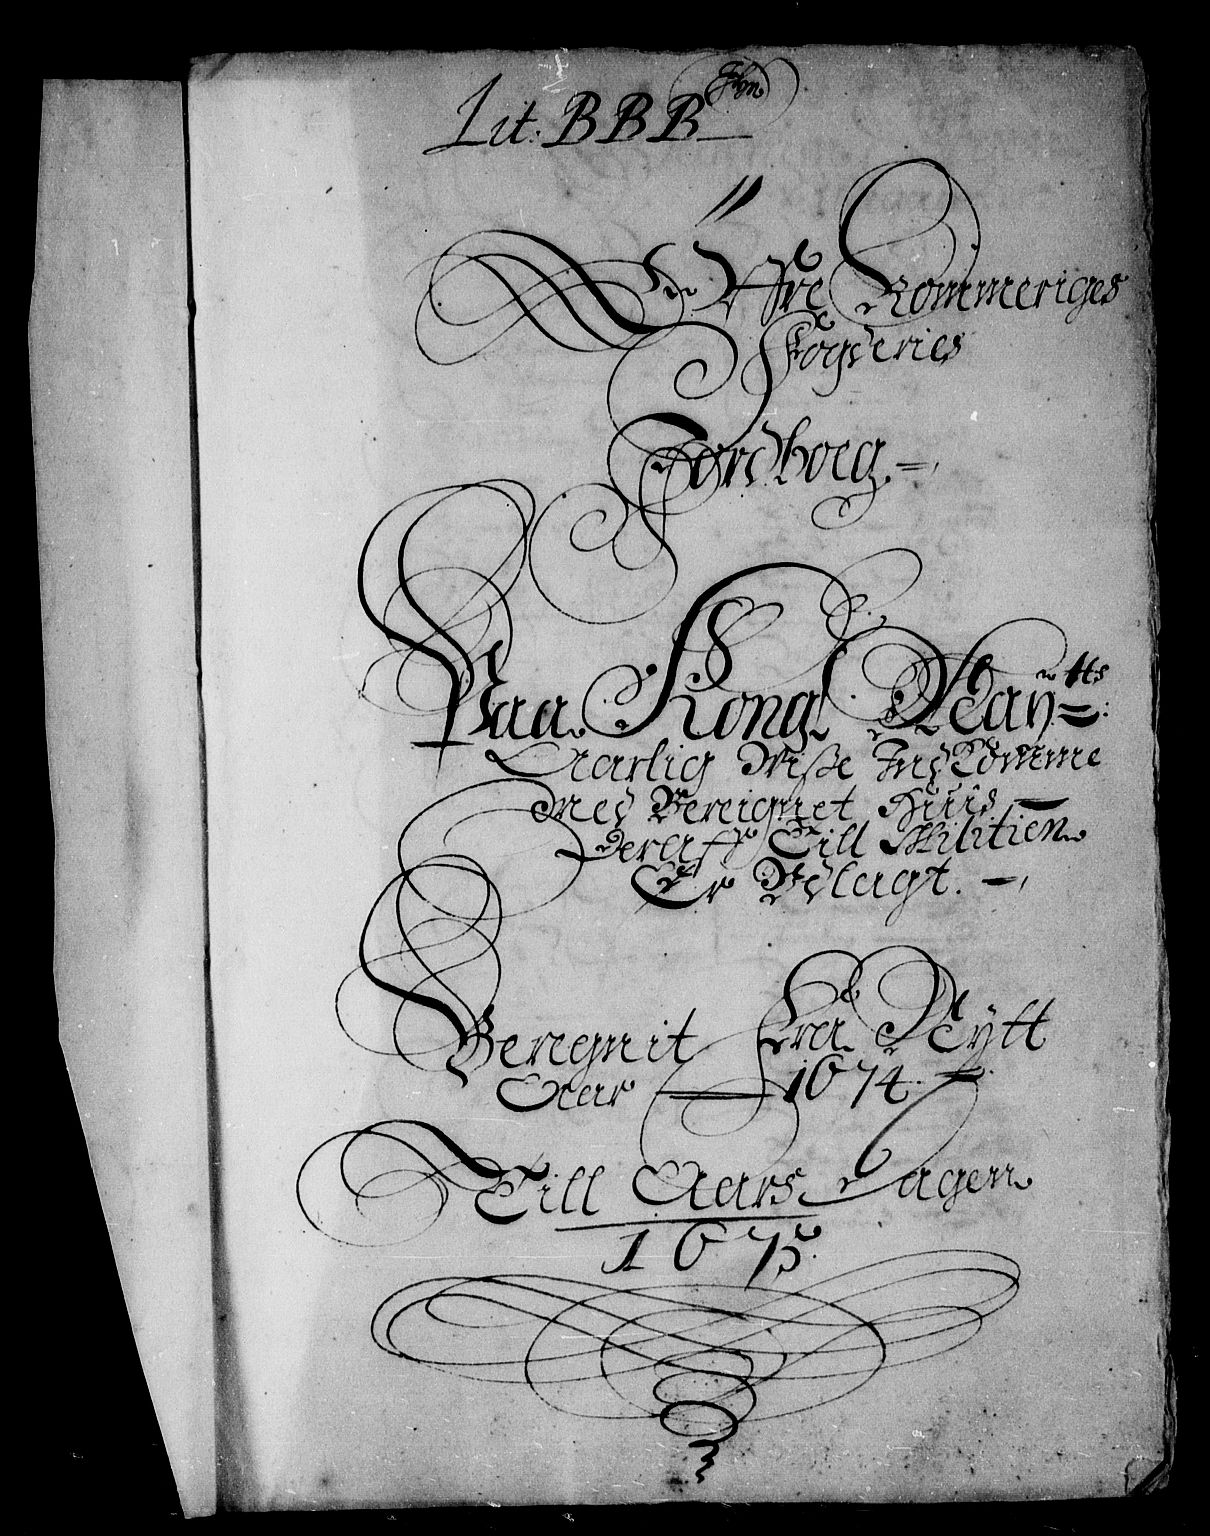 Lit: B B B
Öffre Rommeriges
Fögderies
Jordboeg.
Paa Kongl Maÿtts:
Aarlig Wiße Indkomme
Med Bereignet Huus
Deraff Till Militien
Er Udlagt.
Beregnit Fra Nÿtt
Aar 1674.
Till Aars Dagen
1675.